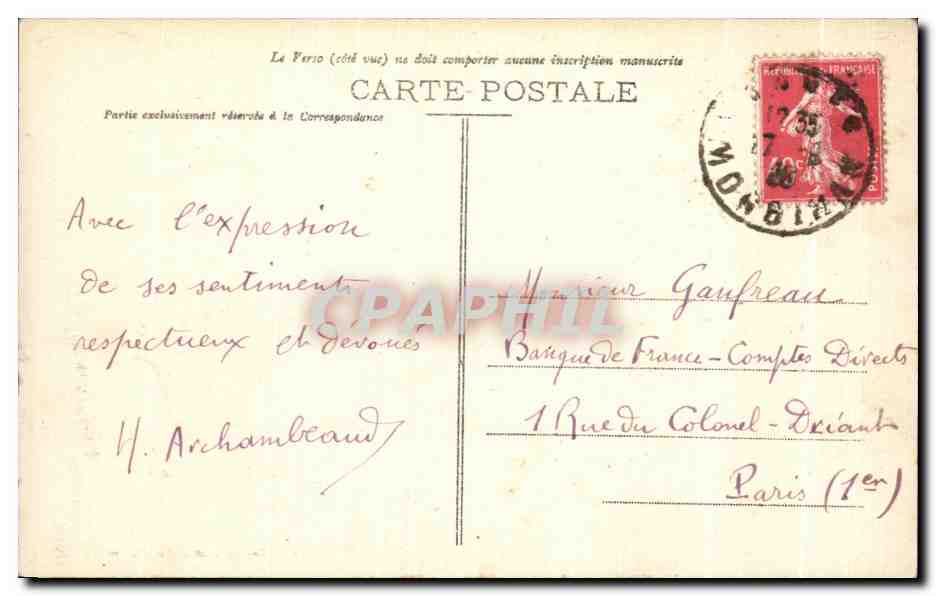 Le Verso (côté vue) ne doit comporter aucune inscription manuscrite
CARTE POSTALE
Partie exclusivement réservée à la Correspondance
REPUBLIQUE FRANÇAISE
40c
POSTES
Avec l'expression
de ses sentiments
respectueux et dévoués
H. Archambeaud
CPAPHIL
Monsieur Gaufreau
Banque de France - Comptes Directs
1 Rue du Colonel - Driant
Paris (1er)